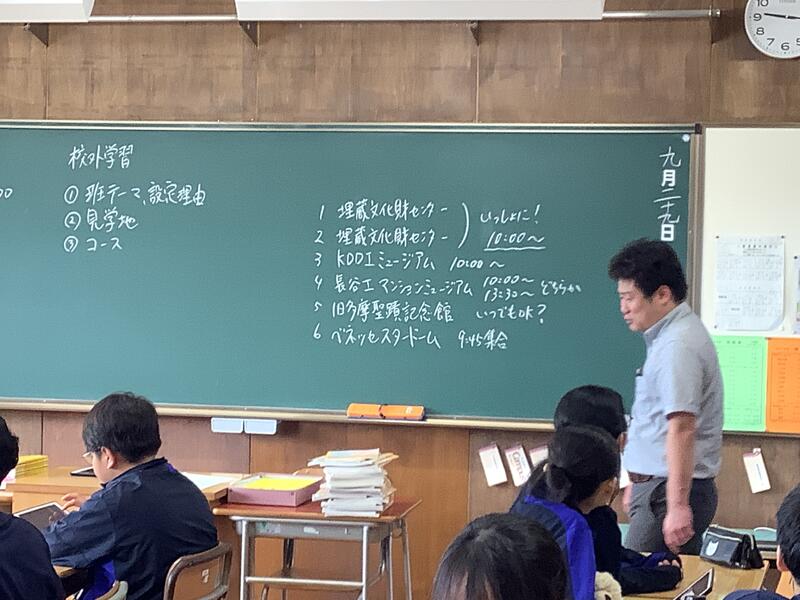 校外学習
① 班テーマ、設定理由
② 見学地
③ コース
1 埋蔵文化財センター
2 埋蔵文化財センター
いっしょに!
10:00〜
3 KDDIミュージアム 10:00〜
4 長谷工マンションミュージアム 10:00〜
13:30〜 どちらか
5 旧多摩聖蹟記念館 いつでもOK?
6 ベネッセスタードーム 9:45集合
九月二十九日